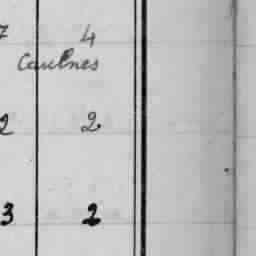 7 4
Caulnes
2 2
3 2